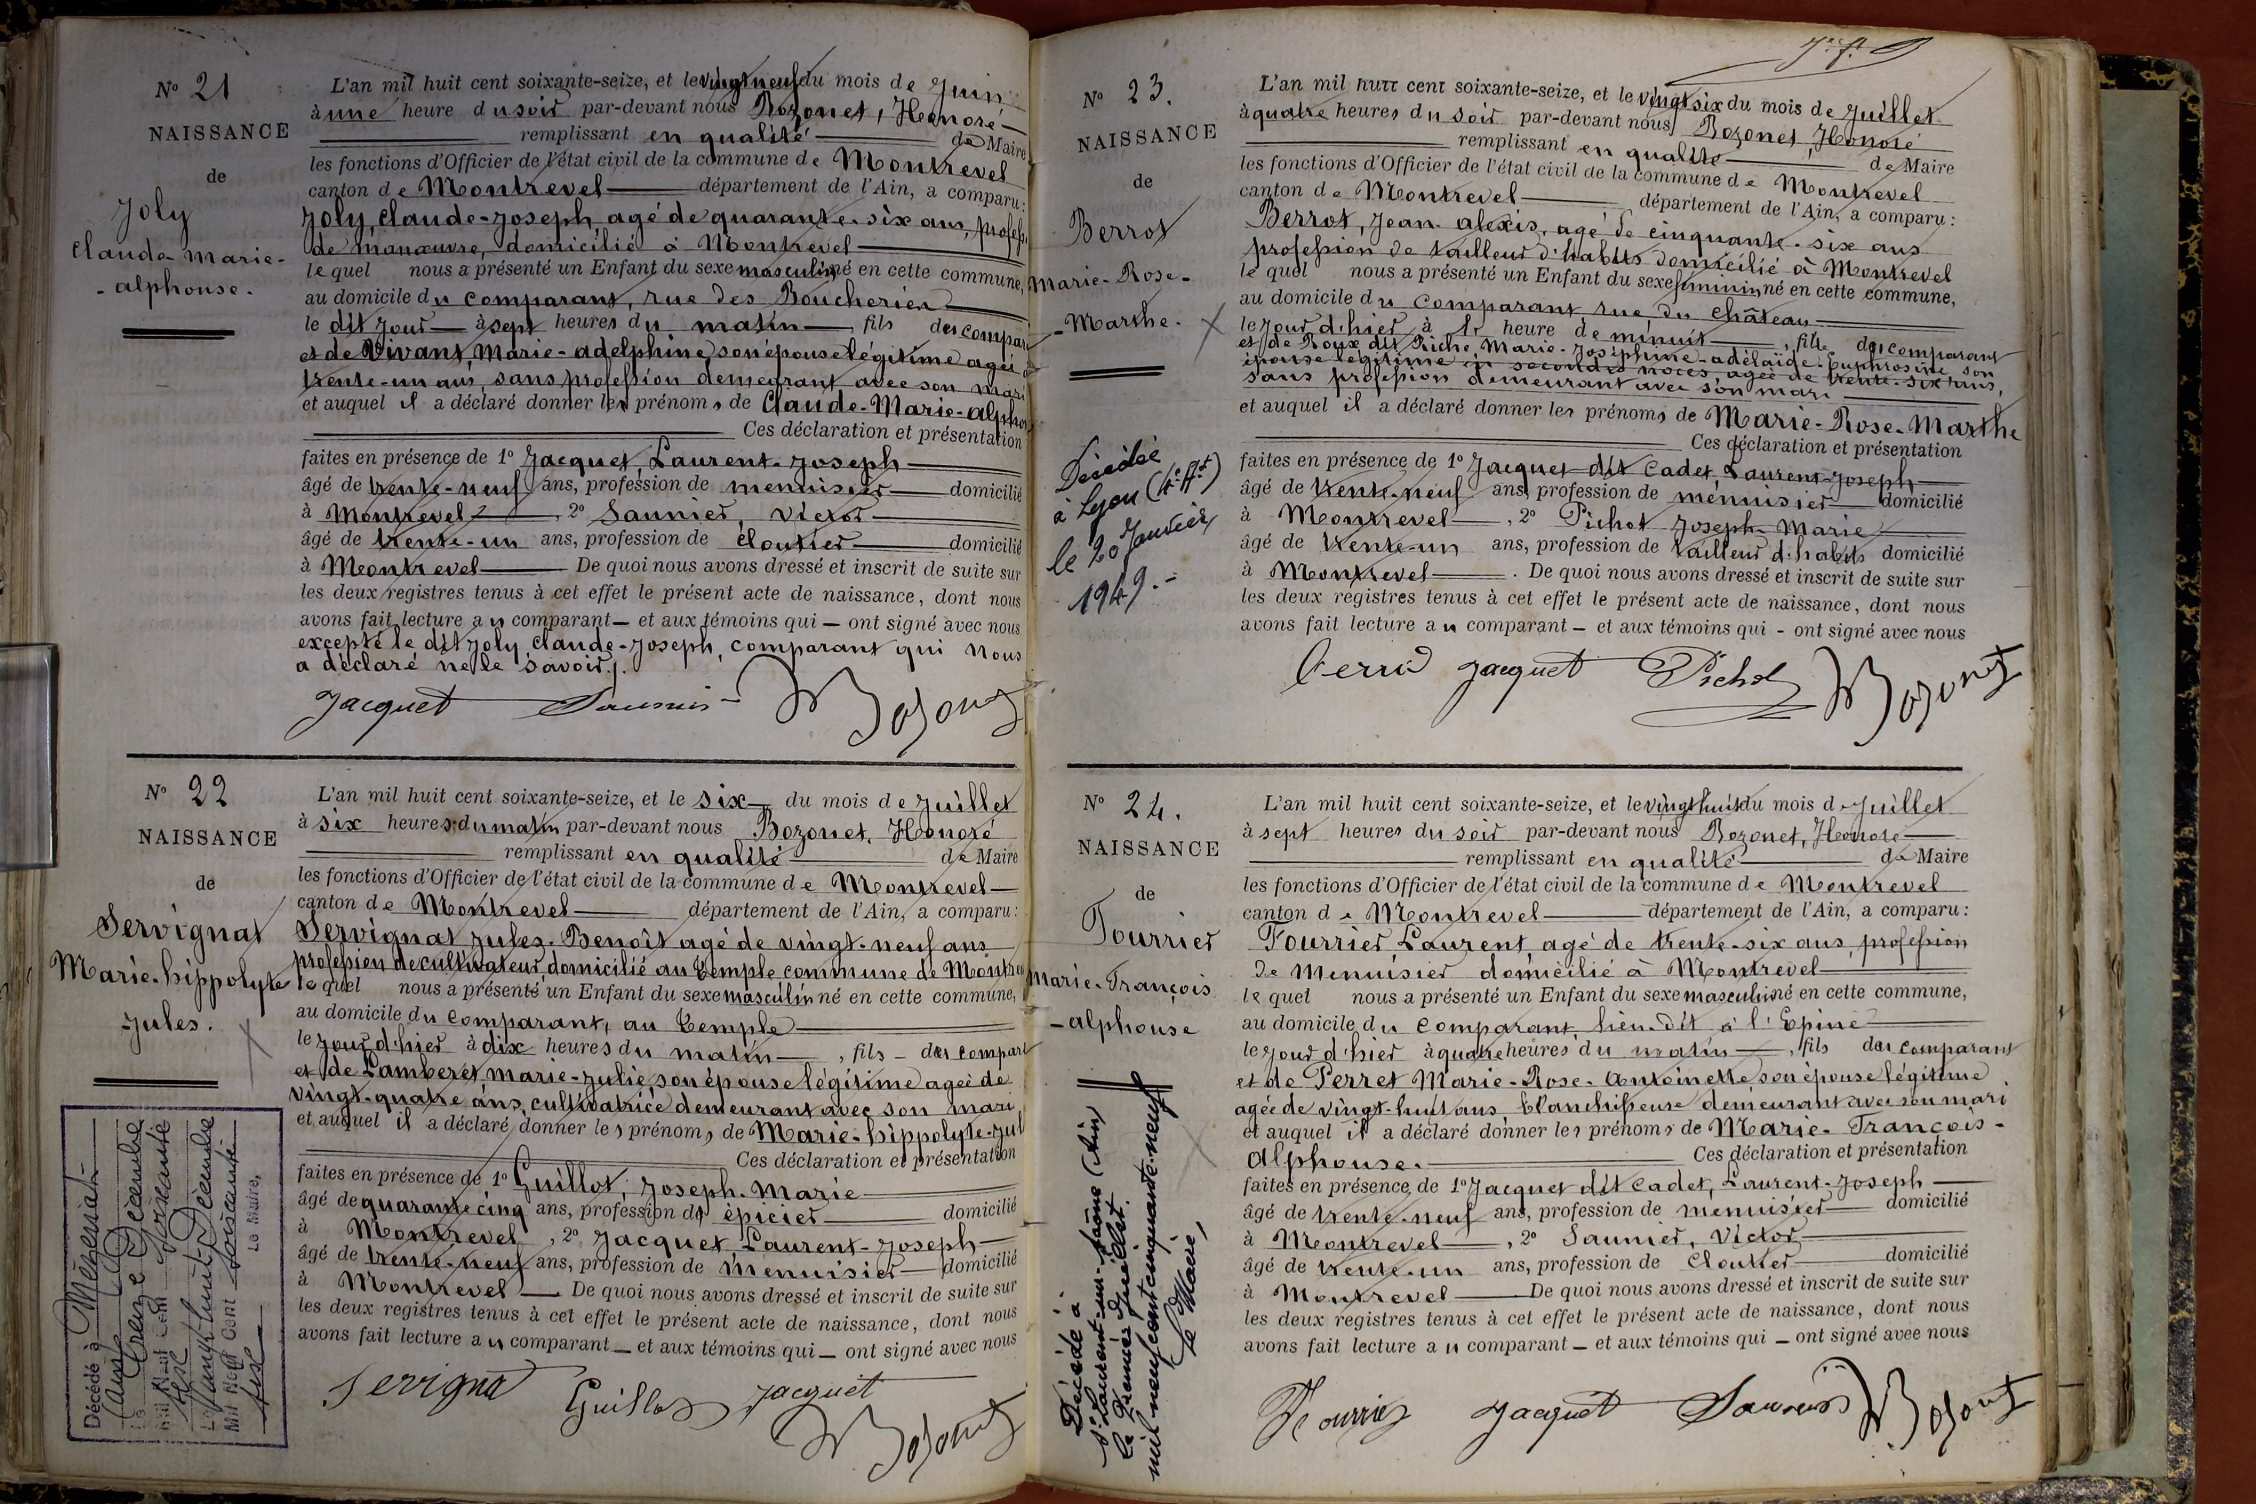 Nº 21
NAISSANCE
de
Joly
Claude-Marie-
-alphonse.
L'an mil huit cent soixante-seize, et le vingt neuf du mois de Juin
à une heure du soir par-devant nous Bozonet, Honoré
remplissant en qualité de Maire
les fonctions d'Officier de l'état civil de la commune de Montrevel
canton de Montrevel département de l'Ain, a comparu:
Joly, Claude-Joseph, agé de quarante-six ans, profess.
de manœuvre, domicilié à Montrevel
lequel nous a présenté un Enfant du sexe masculin né en cette commune,
au domicile du comparant, rue des Boucheries
le dit jour à sept heures du matin, fils des compar
et de Vivant, Marie-adelphine son épouse légitime agée
trente-un ans, sans profession demeurant avec son mari
et auquel il a déclaré donner les prénoms de Claude-Marie-alphon
Ces déclaration et présentation
faites en présence de 1º Jacquet, Laurent-Joseph
âgé de trente-neuf ans, profession de menuisier domicilié
à Montrevel, 2º Saunier, Victor
âgé de trente-un ans, profession de cloutier domicilié
à Montrevel De quoi nous avons dressé et inscrit de suite sur
les deux registres tenus à cet effet le présent acte de naissance, dont nous
avons fait lecture au comparant – et aux témoins qui – ont signé avec nous
excepté le dit Joly, Claude-Joseph, comparant qui nous
a déclaré ne le savoir.
Jacquet Saunier Bozonet
Nº 22
NAISSANCE
de
Servignat
Marie-hippolyte
Jules.
L'an mil huit cent soixante-seize, et le six du mois de Juillet
à six heures du matin par-devant nous Bozonet, Honoré
remplissant en qualité de Maire
les fonctions d'Officier de l'état civil de la commune de Montrevel
canton de Montrevel département de l'Ain, a comparu:
Servignat Jules-Benoît agé de vingt-neuf ans
profession de cultivateur, domicilié au Temple, commune de Montre
lequel nous a présenté un Enfant du sexe masculin né en cette commune,
au domicile du comparant, au Temple
le jour d'hier à dix heures du matin, fils – des compar
et de Lamberet, Marie-Julie, son épouse légitime agée de
vingt-quatre ans, cultivatrice demeurant avec son mari
et auquel il a déclaré donner les prénoms de Marie-hippolyte-Jul
Ces déclaration et présentation
faites en présence de 1º Guillot, Joseph-Marie
âgé de quarante cinq ans, profession de épicier domicilié
à Montrevel, 2º Jacquet Laurent-Joseph
âgé de trente-neuf ans, profession de menuisier domicilié
à Montrevel De quoi nous avons dressé et inscrit de suite sur
les deux registres tenus à cet effet le présent acte de naissance, dont nous
avons fait lecture au comparant – et aux témoins qui – ont signé avec nous
Servignat Guillot Jacquet
Bozonet
Décédé à Mézériat
Le treize Décembre
mil neuf cent soixante
Le vingt huit Décembre
Mil Neuf Cent soixante
Le Maire,
Nº 23.
NAISSANCE
de
Berrot
Marie-Rose-
-Marthe.
Décédée
à Lyon (4e Art)
le 20 Janvier
1949.-
L'an mil huit cent soixante-seize, et le vingt six du mois de Juillet
à quatre heures du soir par-devant nous Bozonet, Honoré
remplissant en qualité de Maire
les fonctions d'Officier de l'état civil de la commune de Montrevel
canton de Montrevel département de l'Ain, a comparu:
Berrot, Jean-alexis, agé de cinquante-six ans
profession de tailleur d'habits domicilié à Montrevel
lequel nous a présenté un Enfant du sexe féminin né en cette commune,
au domicile du comparant rue du Château
le jour d'hier à heure de minuit, fille des comparant
et de Roux dit Riche Marie-Joséphine-adélaïde-Euphrosine son
épouse légitime en secondes noces, agée de trente-six ans,
sans profession demeurant avec son mari
et auquel il a déclaré donner les prénoms de Marie-Rose-Marthe
Ces déclaration et présentation
faites en présence de 1º Jacquet dit Cadet, Laurent-Joseph
âgé de trente-neuf ans, profession de menuisier domicilié
à Montrevel, 2º Pichot Joseph-Marie
âgé de trente-un ans, profession de tailleur d'habits domicilié
à Montrevel. De quoi nous avons dressé et inscrit de suite sur
les deux registres tenus à cet effet le présent acte de naissance, dont nous
avons fait lecture au comparant – et aux témoins qui - ont signé avec nous
Jacquet Pichot Bozonet
Nº 24.
NAISSANCE
de
Fourrier
Marie-François
-alphonse
Décédé à
St Laurent-sur-Saône (Ain)
le Premier Juillet
mil neuf cent cinquante-neuf
Le Maire,
L'an mil huit cent soixante-seize, et le vingt huit du mois de Juillet
à sept heures du soir par-devant nous Bozonet, Honoré
remplissant en qualité de Maire
les fonctions d'Officier de l'état civil de la commune de Montrevel
canton de Montrevel département de l'Ain, a comparu:
Fourrier, Laurent, agé de trente-six ans, profession
de menuisier domicilié à Montrevel
lequel nous a présenté un Enfant du sexe masculin né en cette commune,
au domicile du comparant lieu-dit à l'Epine
le jour d'hier à quatre heures du matin, fils des comparant
et de Perret Marie-Rose-Antoinette, son épouse légitime
agée de vingt-huit ans blanchisseuse demeurant avec son mari
et auquel il a déclaré donner les prénoms de Marie-François-
alphonse. Ces déclaration et présentation
faites en présence de 1º Jacquet dit Cadet, Laurent-Joseph
âgé de trente-neuf ans, profession de menuisier domicilié
à Montrevel, 2º Saunier, Victor
âgé de trente-un ans, profession de Cloutier domicilié
à Montrevel De quoi nous avons dressé et inscrit de suite sur
les deux registres tenus à cet effet le présent acte de naissance, dont nous
avons fait lecture au comparant – et aux témoins qui – ont signé avec nous
Fourrier Jacquet Saunier Bozonet